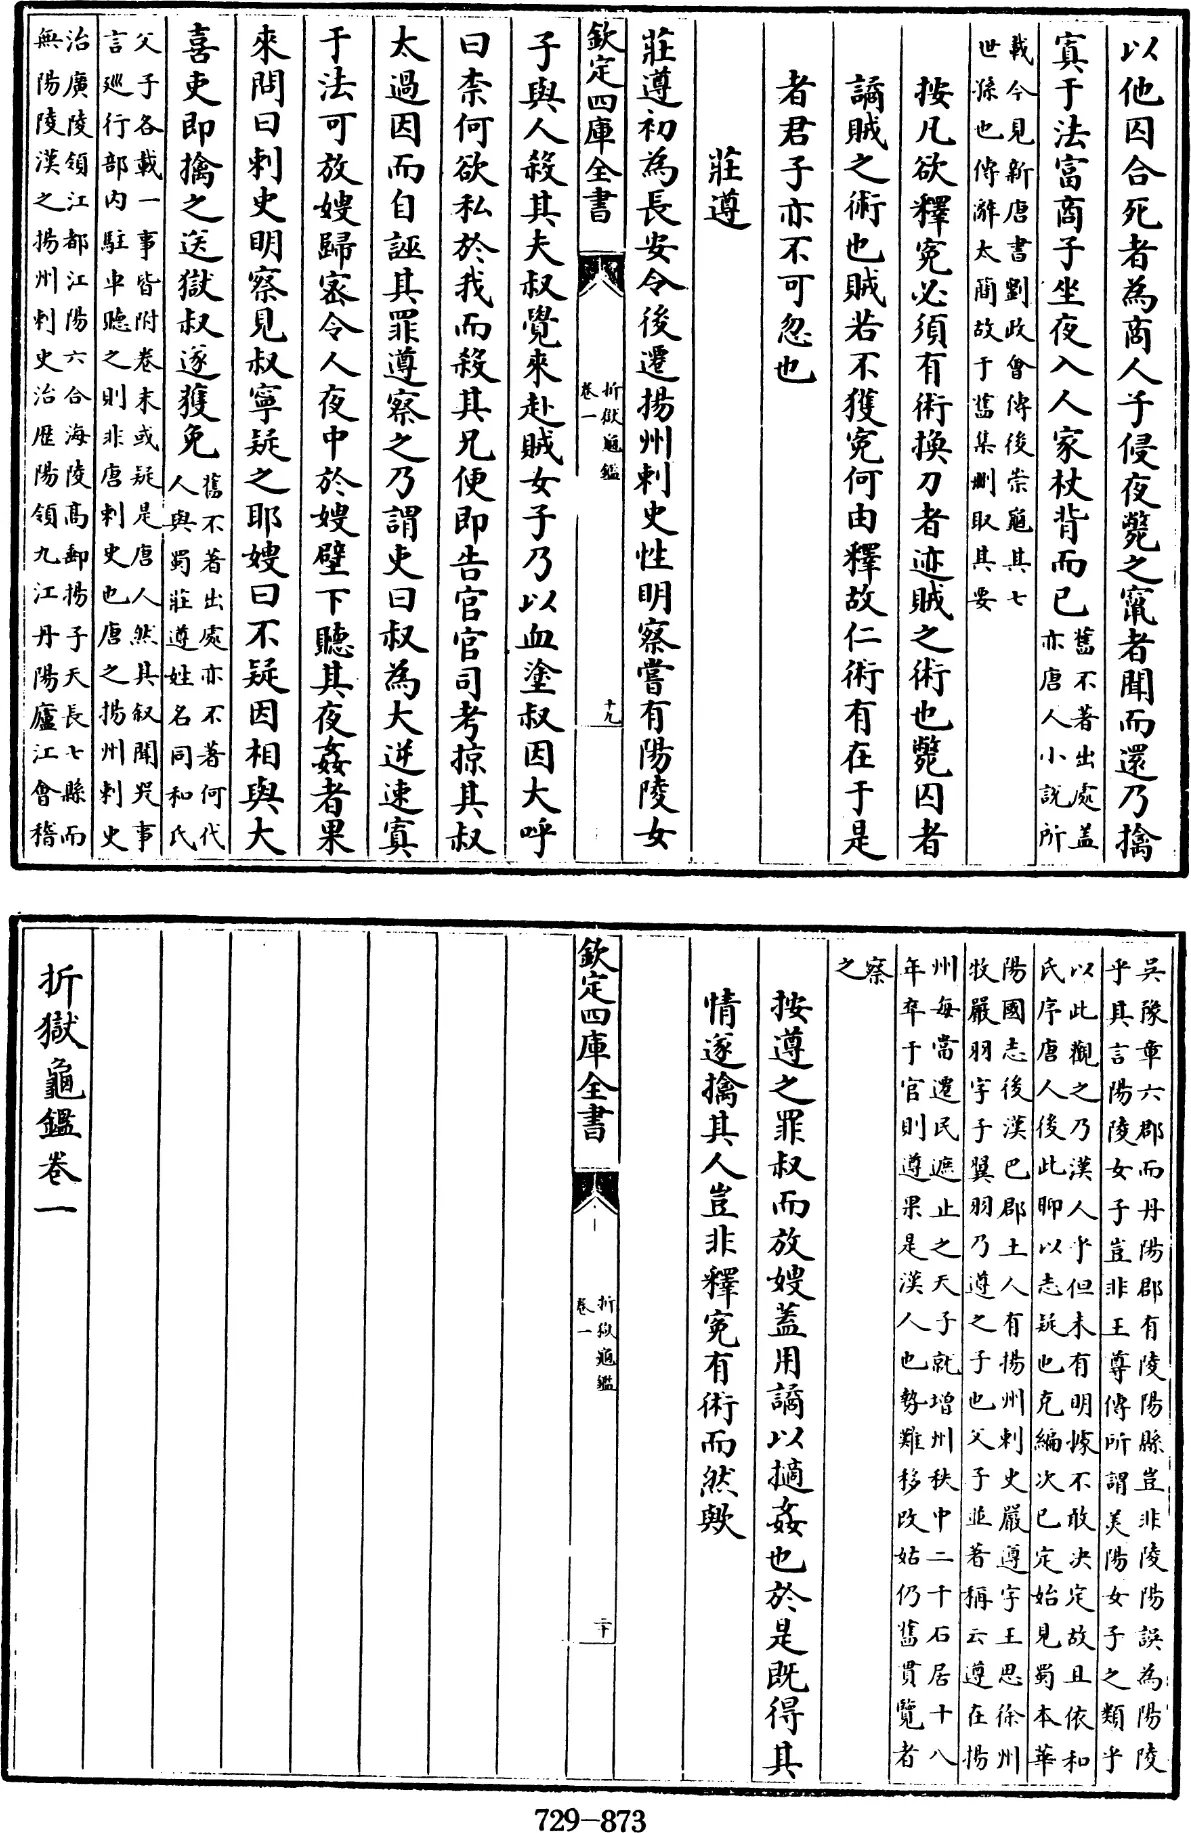 以他囚合死者為商人子侵夜斃之竄者聞而還乃擒
寘于法富商子坐夜入人家杖背而已舊不著出處蓋
亦唐人小説所
載今見新唐書劉政會傳後崇龜其七
世孫也傳辭太簡故于舊集刪取其要
按凡欲釋寃必須有術換刀者迹賊之術也斃囚者
譎賊之術也賊若不獲寃何由釋故仁術有在于是
者君子亦不可忽也
莊遵
莊遵初為長安令後遷揚州刺史性明察嘗有陽陵女
欽定四庫全書
折獄龜鑑
卷一
十九
子與人殺其夫叔覺來赴賊女子乃以血塗叔因大呼
曰柰何欲私於我而殺其兄便即告官官司考掠其叔
太過因而自誣其罪遵察之乃謂吏曰叔為大逆速寘
于法可放嫂歸宻令人夜中於嫂壁下聽其夜姦者果
來問曰刺史明察見叔寧疑之耶嫂曰不疑因相與大
喜吏即擒之送獄叔遂獲免舊不著出處亦不著何代
人與蜀莊遵姓名同和氏
父子各載一事皆附卷末或疑是唐人然其叙聞哭事
言廵行部内駐車聽之則非唐刺史也唐之揚州刺史
治廣陵領江都江陽六合海陵高郵揚子天長七縣而
無陽陵漢之揚州刺史治歴陽領九江丹陽廬江會稽
吳豫章六郡而丹陽郡有陵陽縣豈非陵陽誤為陽陵
乎其言陽陵女子豈非王尊傳所謂美陽女子之類乎
以此觀之乃漢人乎但未有明據不敢决定故且依和
氏序唐人後此聊以志疑也克編次已定始見蜀本華
陽國志後漢巴郡士人有揚州刺史嚴遵字王思徐州
牧嚴羽字子翼羽乃遵之子也父子並著稱云遵在揚
州每當遷民遮止之天子就增州秩中二千石居十八
年卒于官則遵果是漢人也勢難移改姑仍舊貫覽者
察
之
按遵之罪叔而放嫂蓋用譎以擿姦也於是既得其
情遂擒其人豈非釋寃有術而然歟
欽定四庫全書
折獄龜鑑
卷一
二十
折獄龜鑑卷一
729-873